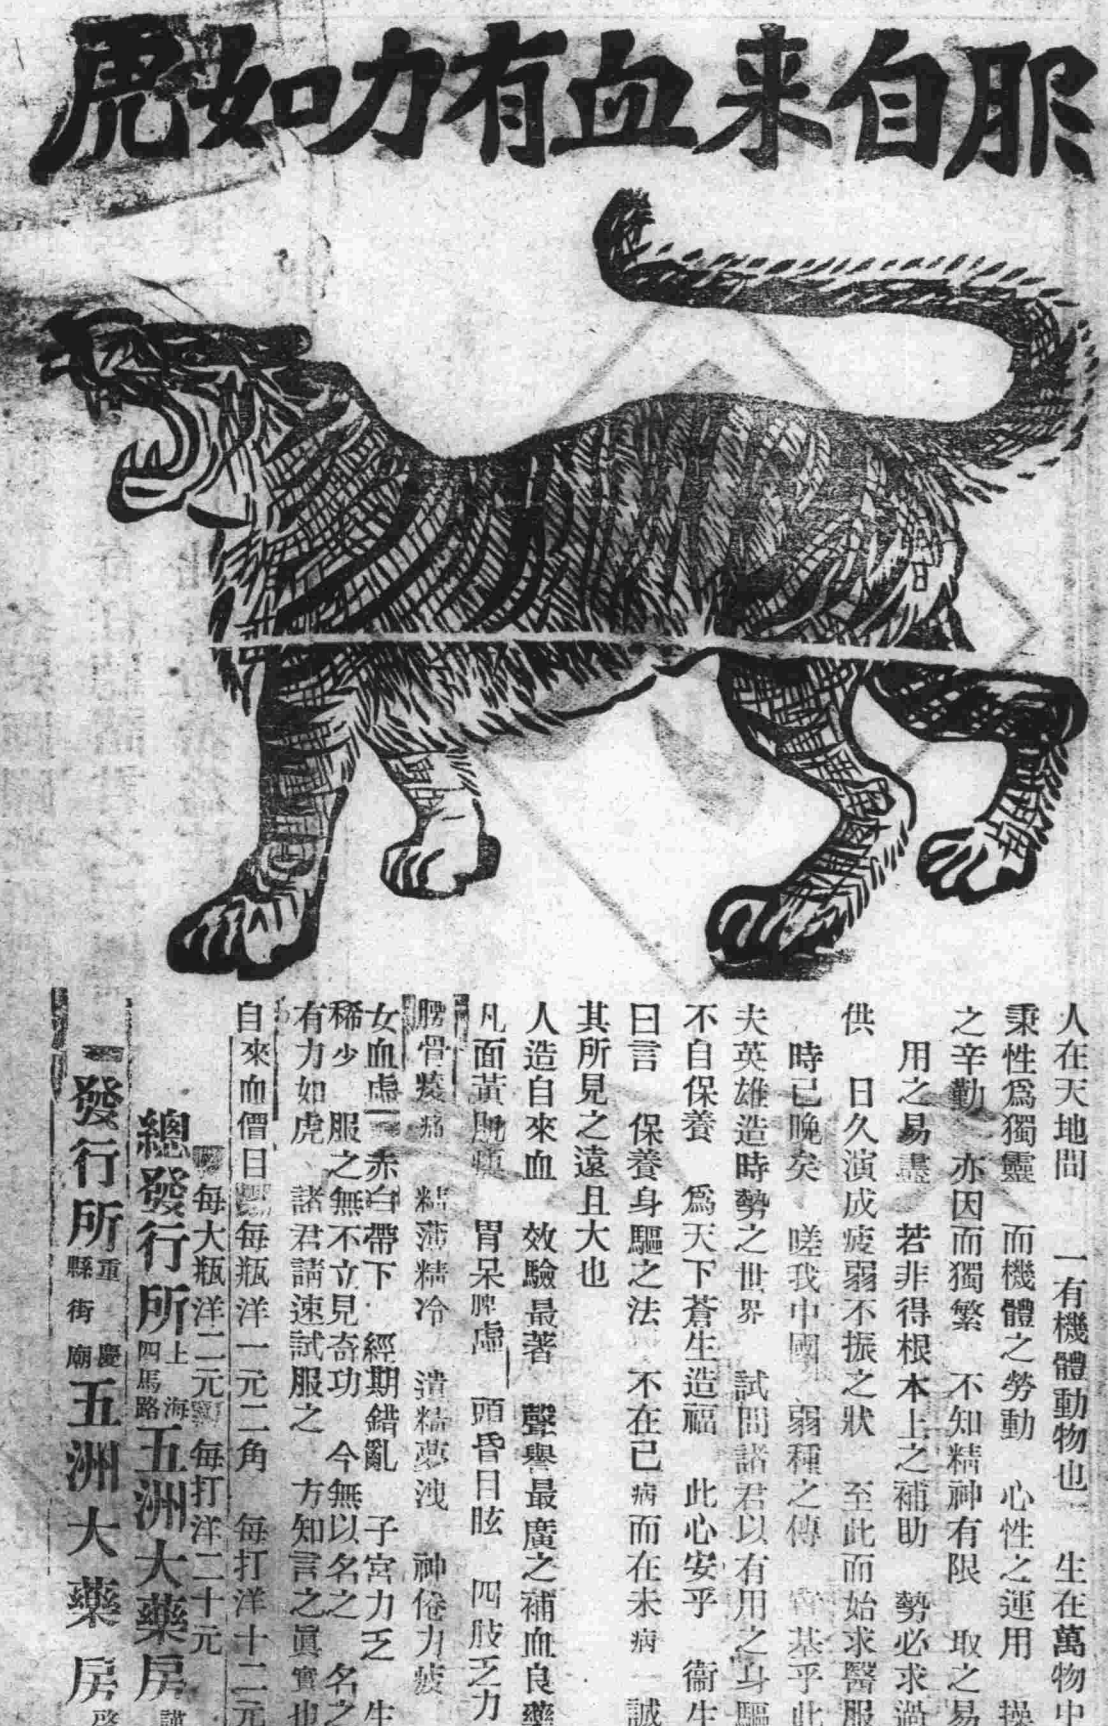 服自来血有力如虎
人在天地間 一有機體動物也 生在萬物中
秉性爲獨靈 而機體之勞動 心性之運用 操
之辛勤 亦因而獨繁 不知精神有限 取之易
用之易盡 若非得根本上之補助 勢必求過
供 日久演成疲弱不振之狀 至此而始求醫服
時已晚矣 嗟我中國 弱種之傳 基乎此
夫英雄造時勢之世界 試問諸君以有用之身驅
不自保養 爲天下蒼生造福 此心安乎 衞生
曰言 保養身驅之法 不在已病而在未病 誠
其所見之遠且大也
人造自來血 效驗最著 聲譽最廣之補血良藥
凡面黃 胃呆脾虛 頭昏目眩 四肢乏力
腰骨痠痛 精薄精冷 潰精夢洩 神倦力疲
女血虛 赤白帶下 經期錯亂 子宮力乏 生
稀少 服之無不立見奇功 今無以名之 名之
有力如虎 諸君請速試服之 方知言之眞實也
自來血價目 每瓶洋一元二角 每打洋十二元
每大瓶洋二元 每打洋二十元
總發行所 上海四馬路 五洲大藥房 謹
發行所 重慶縣廟街 五洲大藥房 啓